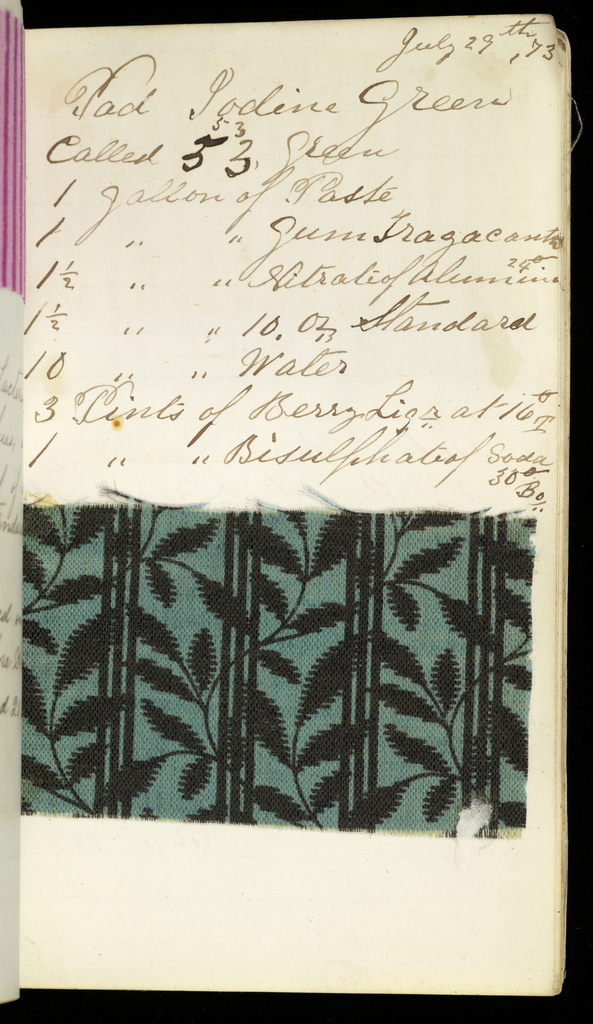 July 29th, 73
Pad Iodine Green
5 3
Called 53, Green
1 gallon of Paste
1 " " Gum Tragacanth
1½ " " Nitrate of Alumina 24°
1½ " " 10. Oz Standard
10 " " Water
3 Pints of Berry Liqr at 16° T
1 " " Bisulphate of Soda
30° Be